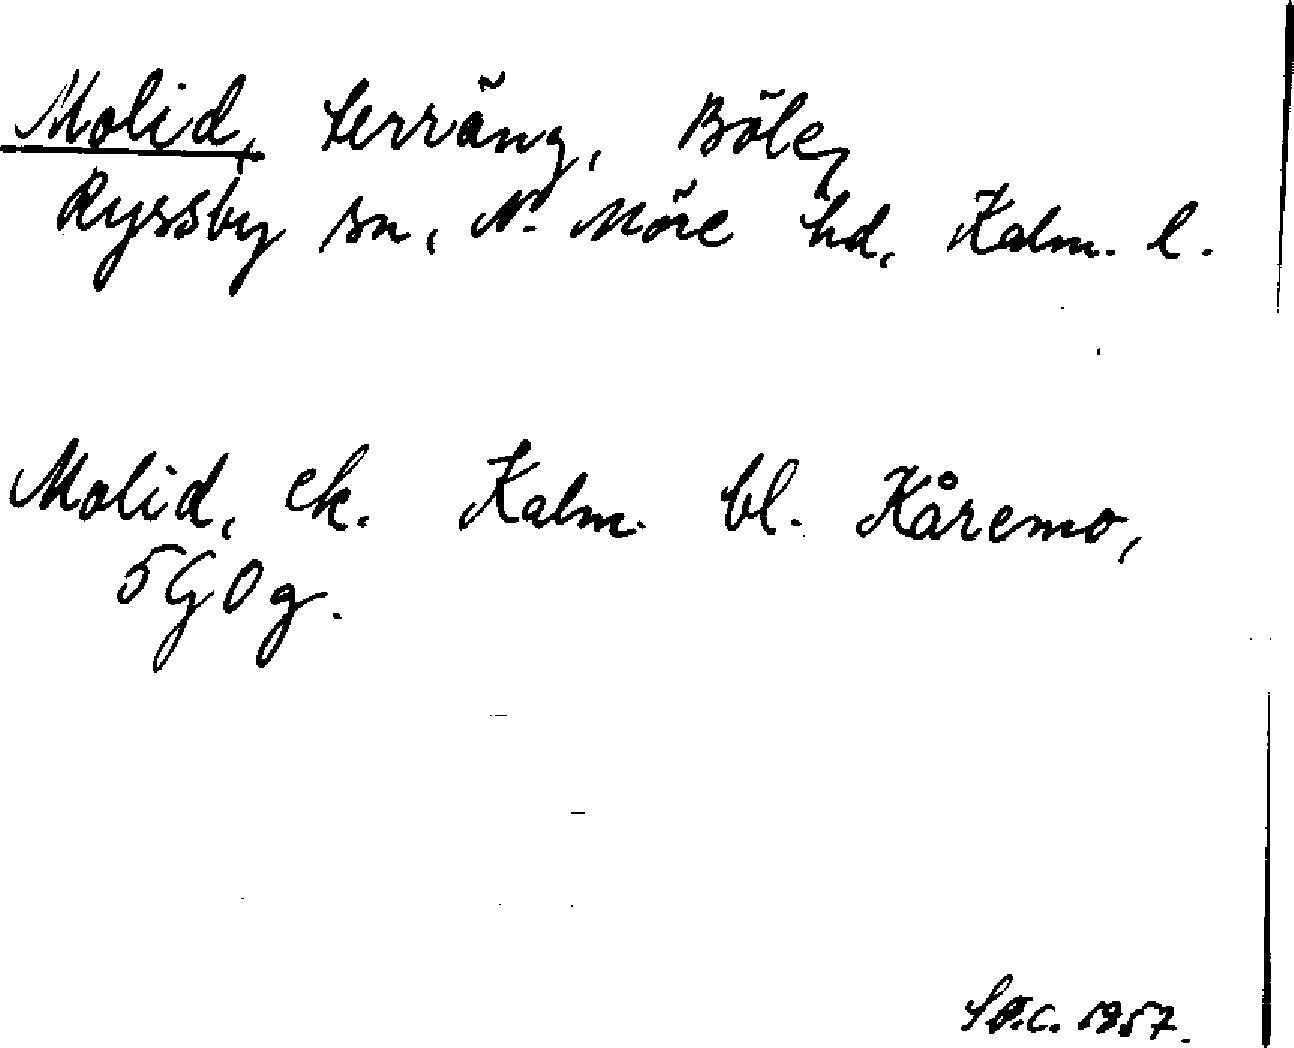 Molid, terräng, Böle,
Ryssby sn, N. Möre hd, Kalm. l.
Molid, ek. Kalm. bl. Kåremo,
5G0g.
1957.